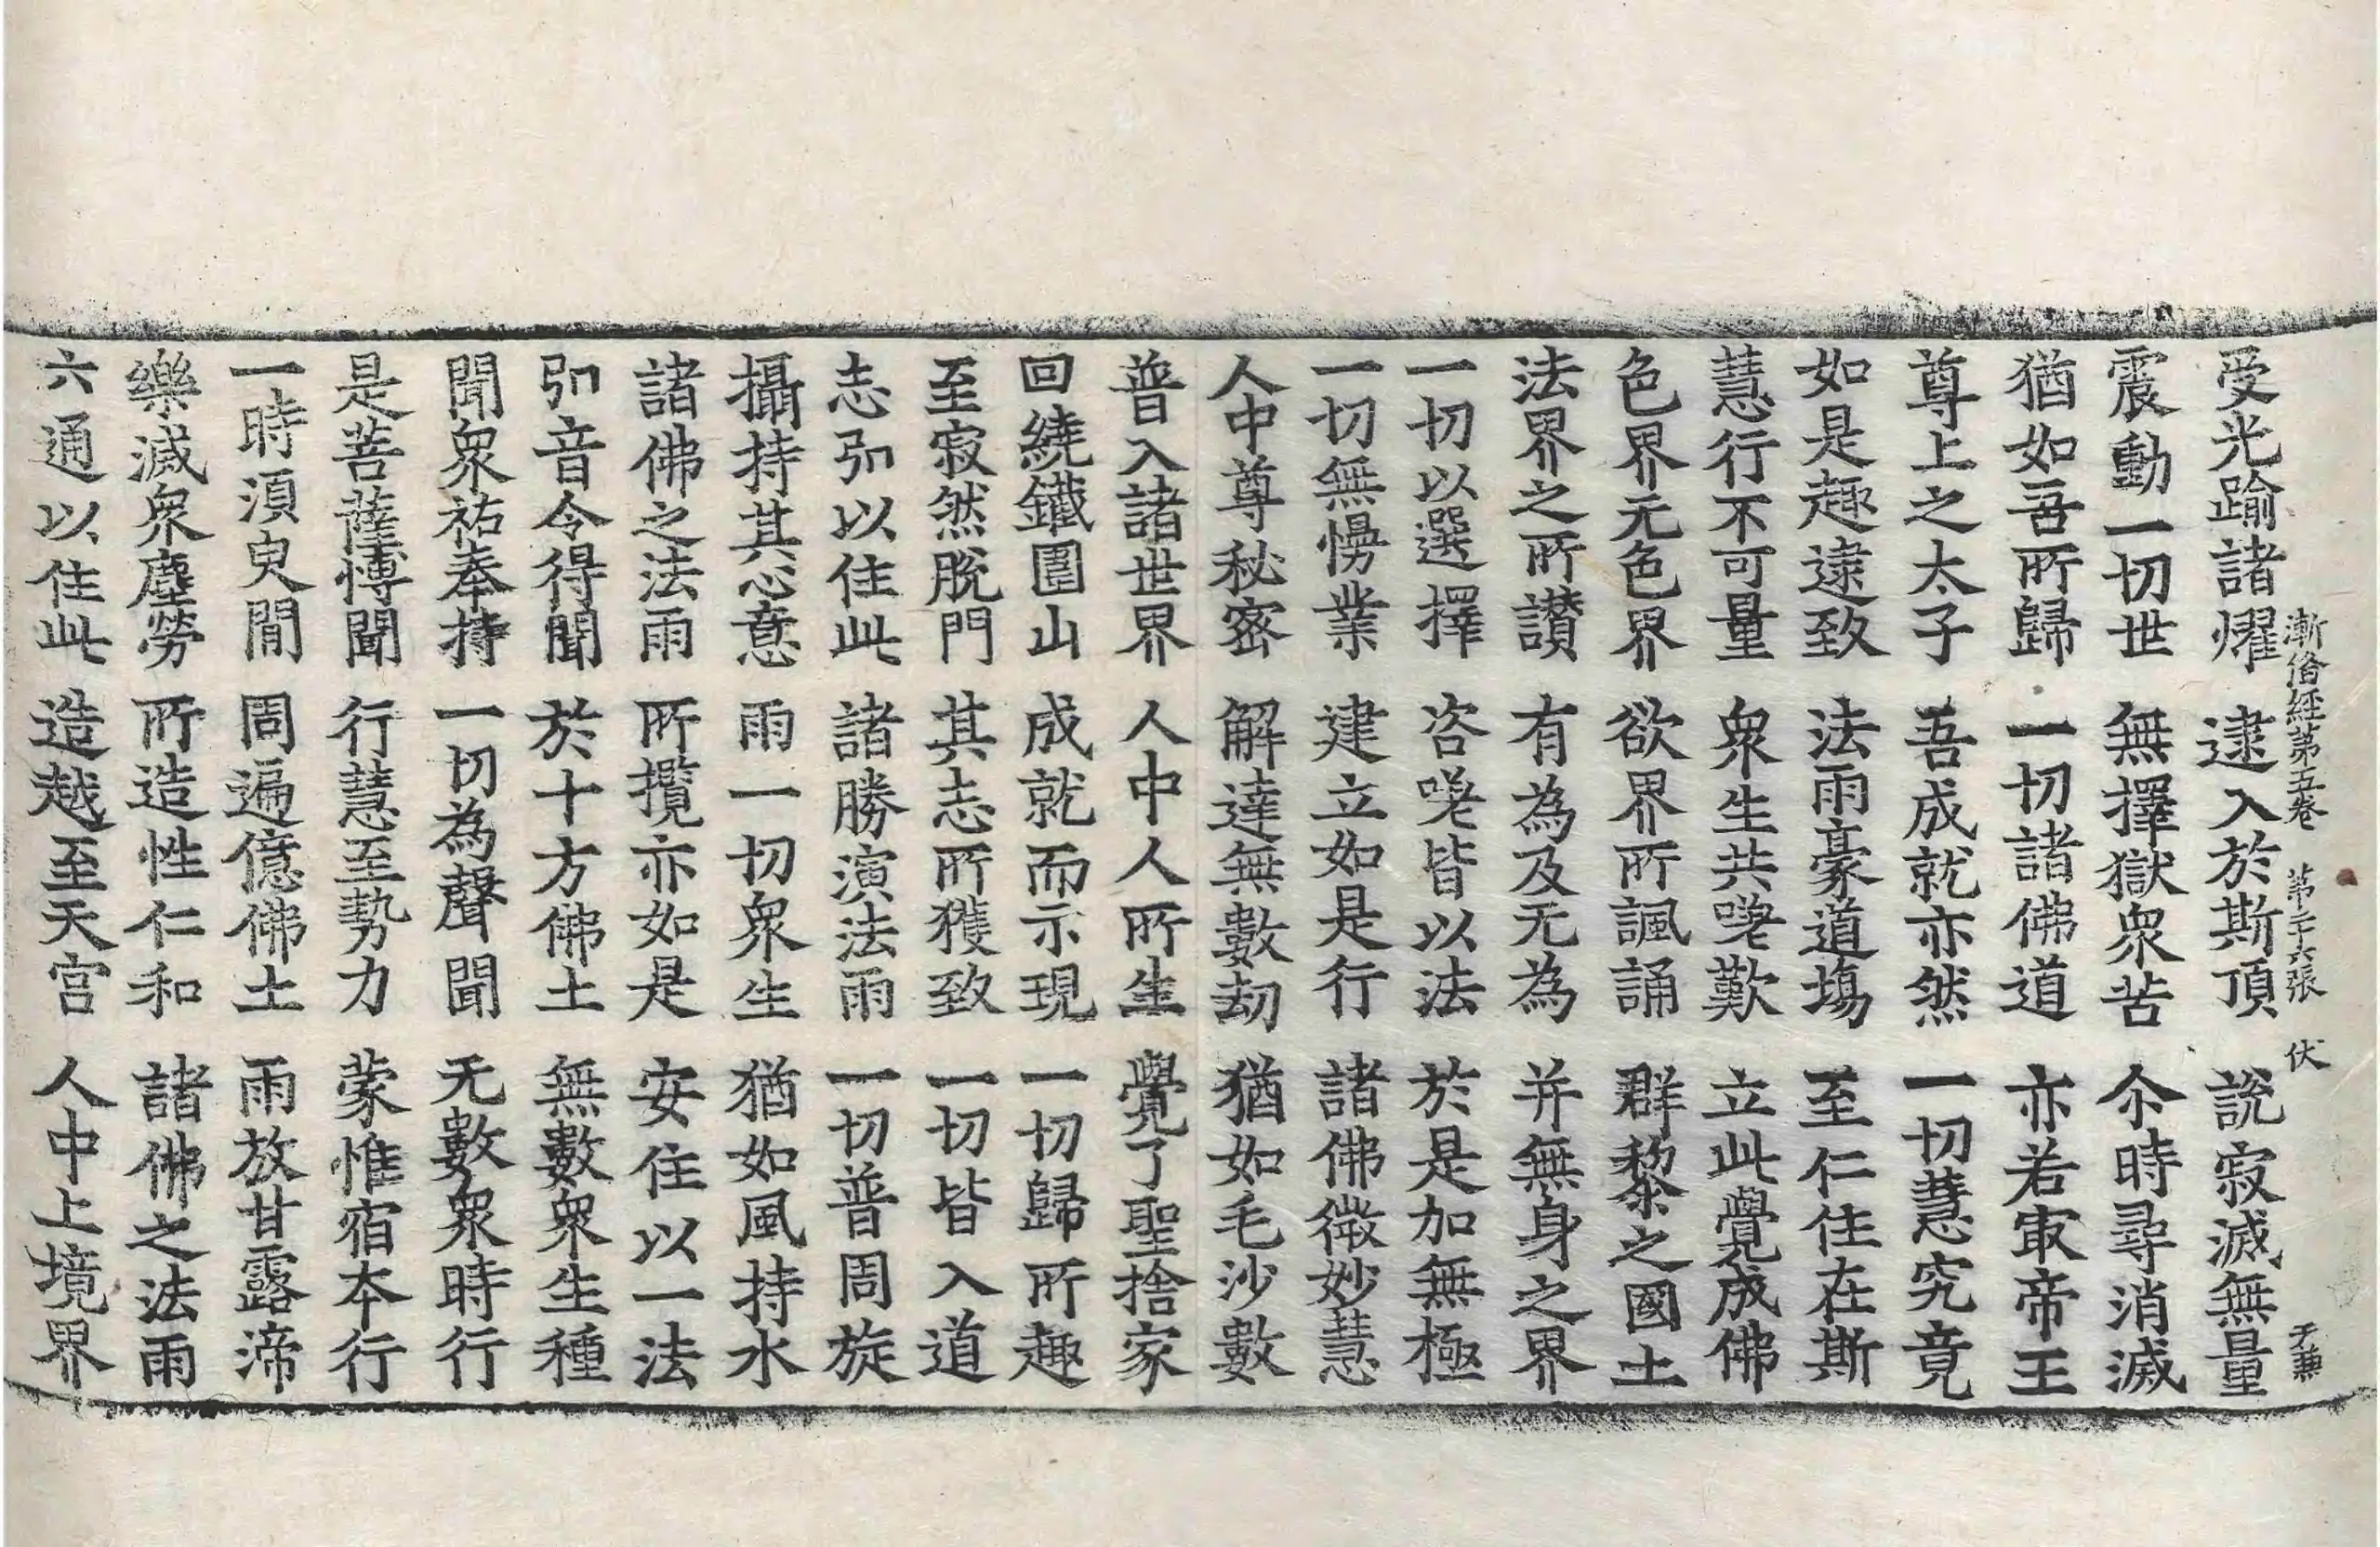 漸俻經第五卷 第二十六張 伏 天兼
受光踰諸燿 逮入於斯頂 說寂滅無量
震動一切世 無擇獄衆苦 尒時尋消滅
猶如吾所歸 一切諸佛道 亦若取帝王
尊上之太子 吾成就亦然 一切慧究竟
如是趣逮致 法雨豪道塲 至仁住在斯
慧行不可量 衆生共嗟歎 立此覺成佛
色界无色界 欲界所諷誦 群黎之國土
法界之所讃 有為及无為 并無身之界
一切以選擇 咨嗟皆以法 於是加無極
一切無慢業 建立如是行 諸佛微妙慧
人中尊秘密 解達無數劫 猶如毛沙數
普入諸世界 人中人所生 覺了聖捨家
回繞鐵圍山 成就而示現 一切歸所趣
至寂然脫門 其志所獲致 一切皆入道
志引以住此 諸勝演法雨 一切普周旋
攝持其心意 雨一切衆生 猶如風持水
諸佛之法雨 所攬亦如是 安住以一法
引音令得聞 於十方佛土 無數衆生種
聞衆祐奉持 一切為聲聞 无數衆時行
是菩薩博聞 行慧至勢力 蒙惟宿本行
一時須臾閒 周遍億佛土 雨放甘露渧
樂滅衆塵勞 所造性仁和 諸佛之法雨
六通以住此 造越至天宮 人中上境界